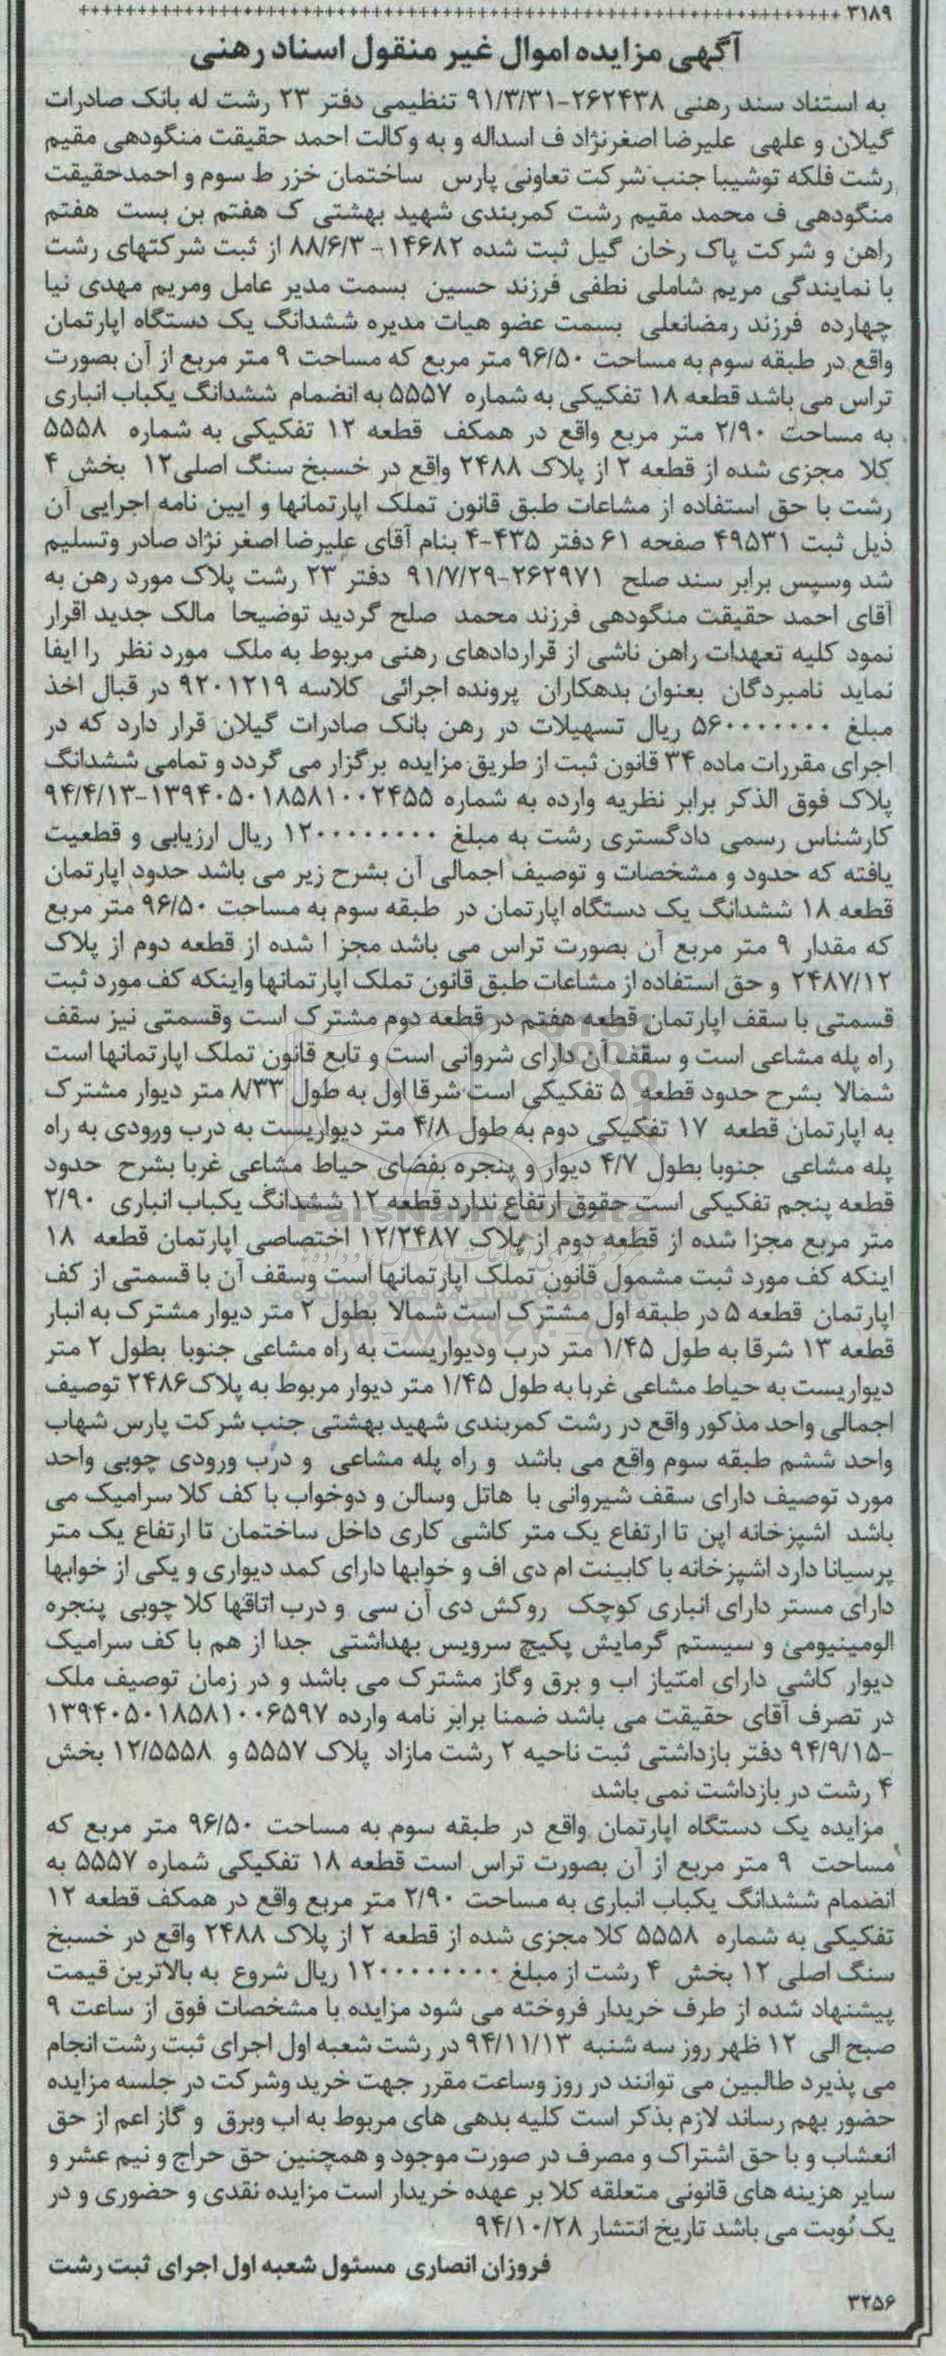 ۳۱۸۹ ++++++++++++++++++++++++++++++++++++++++
آگهی مزایده اموال غیر منقول اسناد رهنی
به استناد سند رهنی ۲۶۲۴۳۸-۹۱/۳/۳۱ تنظیمی دفتر ۲۳ رشت له بانک صادرات
گیلان و علهی علیرضا اصغرنژاد ف اسداله و به وکالت احمد حقیقت منگودهی مقیم
رشت فلکه توشیبا جنب شرکت تعاونی پارس ساختمان خزر ط سوم و احمدحقیقت
منگودهی ف محمد مقیم رشت کمربندی شهید بهشتی ک هفتم بن بست هفتم
راهن و شرکت پاک رخان گیل ثبت شده ۱۴۶۸۲- ۸۸/۶/۳ از ثبت شرکتهای رشت
با نمایندگی مریم شاملی نطفی فرزند حسین بسمت مدیر عامل ومریم مهدی نیا
چهارده فرزند رمضانعلی بسمت عضو هیات مدیره ششدانگ یک دستگاه اپارتمان
واقع در طبقه سوم به مساحت ۹۶/۵۰ متر مربع که مساحت ۹ متر مربع از آن بصورت
تراس می باشد قطعه ۱۸ تفکیکی به شماره ۵۵۵۷ به انضمام ششدانگ یکباب انباری
به مساحت ۲/۹۰ متر مربع واقع در همکف قطعه ۱۲ تفکیکی به شماره ۵۵۵۸
کلا مجزی شده از قطعه ۲ از پلاک ۲۴۸۸ واقع در خسبخ سنگ اصلی۱۲ بخش ۴
رشت با حق استفاده از مشاعات طبق قانون تملک اپارتمانها و ایین نامه اجرایی آن
ذیل ثبت ۴۹۵۳۱ صفحه ۶۱ دفتر ۴۳۵-۴ بنام آقای علیرضا اصغر نژاد صادر وتسلیم
شد وسپس برابر سند صلح ۲۶۲۹۷۱-۹۱/۷/۲۹ دفتر ۲۳ رشت پلاک مورد رهن به
آقای احمد حقیقت منگودهی فرزند محمد صلح گردید توضیحا مالک جدید اقرار
نمود کلیه تعهدات راهن ناشی از قراردادهای رهنی مربوط به ملک مورد نظر را ایفا
نماید نامبردگان بعنوان بدهکاران پرونده اجرائی کلاسه ۹۲۰۱۲۱۹ در قبال اخذ
مبلغ ۵۶۰۰۰۰۰۰۰ ریال تسهیلات در رهن بانک صادرات گیلان قرار دارد که در
اجرای مقررات ماده ۳۴ قانون ثبت از طریق مزایده برگزار می گردد و تمامی ششدانگ
پلاک فوق الذکر برابر نظریه وارده به شماره ۱۳۹۴۰۵۰۱۸۵۸۱۰۰۲۴۵۵-۹۴/۴/۱۳
کارشناس رسمی دادگستری رشت به مبلغ ۱۲۰۰۰۰۰۰۰۰ ریال ارزیابی و قطعیت
یافته که حدود و مشخصات و توصیف اجمالی آن بشرح زیر می باشد حدود اپارتمان
قطعه ۱۸ ششدانگ یک دستگاه اپارتمان در طبقه سوم به مساحت ۹۶/۵۰ متر مربع
که مقدار ۹ متر مربع آن بصورت تراس می باشد مجز ا شده از قطعه دوم از پلاک
۲۴۸۷/۱۲ و حق استفاده از مشاعات طبق قانون تملک اپارتمانها واینکه کف مورد ثبت
قسمتی با سقف اپارتمان قطعه هفتم در قطعه دوم مشترک است وقسمتی نیز سقف
راه پله مشاعی است و سقف آن دارای شروانی است و تابع قانون تملک اپارتمانها است
شمالا بشرح حدود قطعه ۵ تفکیکی است شرقا اول به طول ۸/۳۳ متر دیوار مشترک
به اپارتمان قطعه ۱۷ تفکیکی دوم به طول ۴/۸ متر دیواریست به درب ورودی به راه
پله مشاعی جنوبا بطول ۴/۷ دیوار و پنجره بفضای حیاط مشاعی غربا بشرح حدود
قطعه پنجم تفکیکی است حقوق ارتفاع ندارد قطعه ۱۲ ششدانگ یکباب انباری ۲/۹۰
متر مربع مجزا شده از قطعه دوم از پلاک ۱۲/۲۴۸۷ اختصاصی اپارتمان قطعه ۱۸
اینکه کف مورد ثبت مشمول قانون تملک اپارتمانها است وسقف آن با قسمتی از کف
اپارتمان قطعه ۵ در طبقه اول مشترک است شمالا بطول ۲ متر دیوار مشترک به انبار
قطعه ۱۳ شرقا به طول ۱/۴۵ متر درب ودیواریست به راه مشاعی جنوبا بطول ۲ متر
دیواریست به حیاط مشاعی غربا به طول ۱/۴۵ متر دیوار مربوط به پلاک۲۴۸۶ توصیف
اجمالی واحد مذکور واقع در رشت کمربندی شهید بهشتی جنب شرکت پارس شهاب
واحد ششم طبقه سوم واقع می باشد و راه پله مشاعی و درب ورودی چوبی واحد
مورد توصیف دارای سقف شیروانی با هاتل وسالن و دوخواب با کف کلا سرامیک می
باشد اشپزخانه اپن تا ارتفاع یک متر کاشی کاری داخل ساختمان تا ارتفاع یک متر
پرسیانا دارد اشپزخانه با کابینت ام دی اف و خوابها دارای کمد دیواری و یکی از خوابها
دارای مستر دارای انباری کوچک روکش دی آن سی و درب اتاقها کلا چوبی پنجره
الومینیومی و سیستم گرمایش پکیج سرویس بهداشتی جدا از هم با کف سرامیک
دیوار کاشی دارای امتیاز اب و برق وگاز مشترک می باشد و در زمان توصیف ملک
در تصرف آقای حقیقت می باشد ضمنا برابر نامه وارده ۱۳۹۴۰۵۰۱۸۵۸۱۰۰۶۵۹۷
-۹۴/۹/۱۵ دفتر بازداشتی ثبت ناحیه ۲ رشت مازاد پلاک ۵۵۵۷ و ۱۲/۵۵۵۸ بخش
۴ رشت در بازداشت نمی باشد
مزایده یک دستگاه اپارتمان واقع در طبقه سوم به مساحت ۹۶/۵۰ متر مربع که
مساحت ۹ متر مربع از آن بصورت تراس است قطعه ۱۸ تفکیکی شماره ۵۵۵۷ به
انضمام ششدانگ یکباب انباری به مساحت ۲/۹۰ متر مربع واقع در همکف قطعه ۱۲
تفکیکی به شماره ۵۵۵۸ کلا مجزی شده از قطعه ۲ از پلاک ۲۴۸۸ واقع در خسبخ
سنگ اصلی ۱۲ بخش ۴ رشت از مبلغ ۱۲۰۰۰۰۰۰۰۰ ریال شروع به بالاترین قیمت
پیشنهاد شده از طرف خریدار فروخته می شود مزایده با مشخصات فوق از ساعت ۹
صبح الی ۱۲ ظهر روز سه شنبه ۹۴/۱۱/۱۳ در رشت شعبه اول اجرای ثبت رشت انجام
می پذیرد طالبین می توانند در روز وساعت مقرر جهت خرید وشرکت در جلسه مزایده
حضور بهم رساند لازم بذکر است کلیه بدهی های مربوط به اب وبرق و گاز اعم از حق
انعشاب و با حق اشتراک و مصرف در صورت موجود و همچنین حق حراج و نیم عشر و
سایر هزینه های قانونی متعلقه کلا بر عهده خریدار است مزایده نقدی و حضوری و در
یک نوبت می باشد تاریخ انتشار ۹۴/۱۰/۲۸
فروزان انصاری مسئول شعبه اول اجرای ثبت رشت
۳۲۵۶